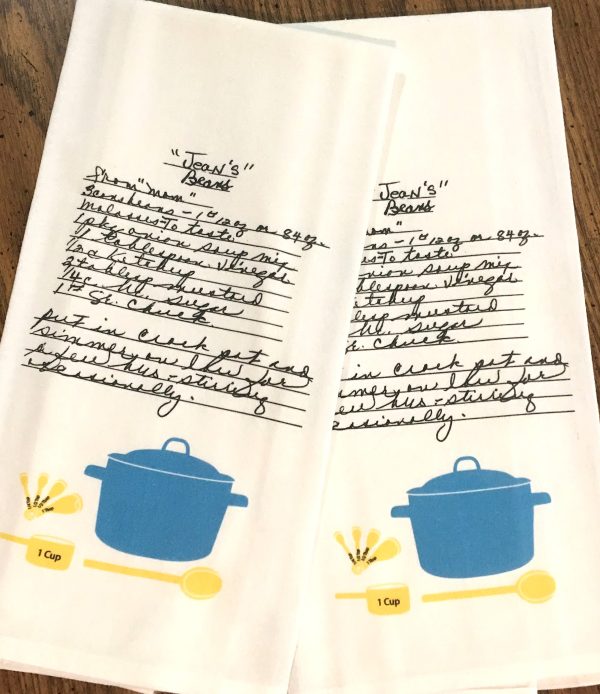 "Jean's"
Beans
from "mom"
3 cans beans - 1# 12oz or 84oz.
Molasses To taste
1 pkg onion soup mix
1 tablespoon vinegar
1/2 c ketchup
2 tablesp mustard
1/4 c. br. sugar
1# Gr. Chuck
put in crock pot and
simmer on low for
a few hrs - stirring
occasionally.
1 Cup
"Jean's"
Beans
mom"
ans - 1# 12oz or 84oz.
To taste
nion soup mix
blespoon vinegar
ketchup
tablesp mustard
br. sugar
r. Chuck
in crock pot and
immer on low for
few hrs - stirring
casionally.
1 Cup